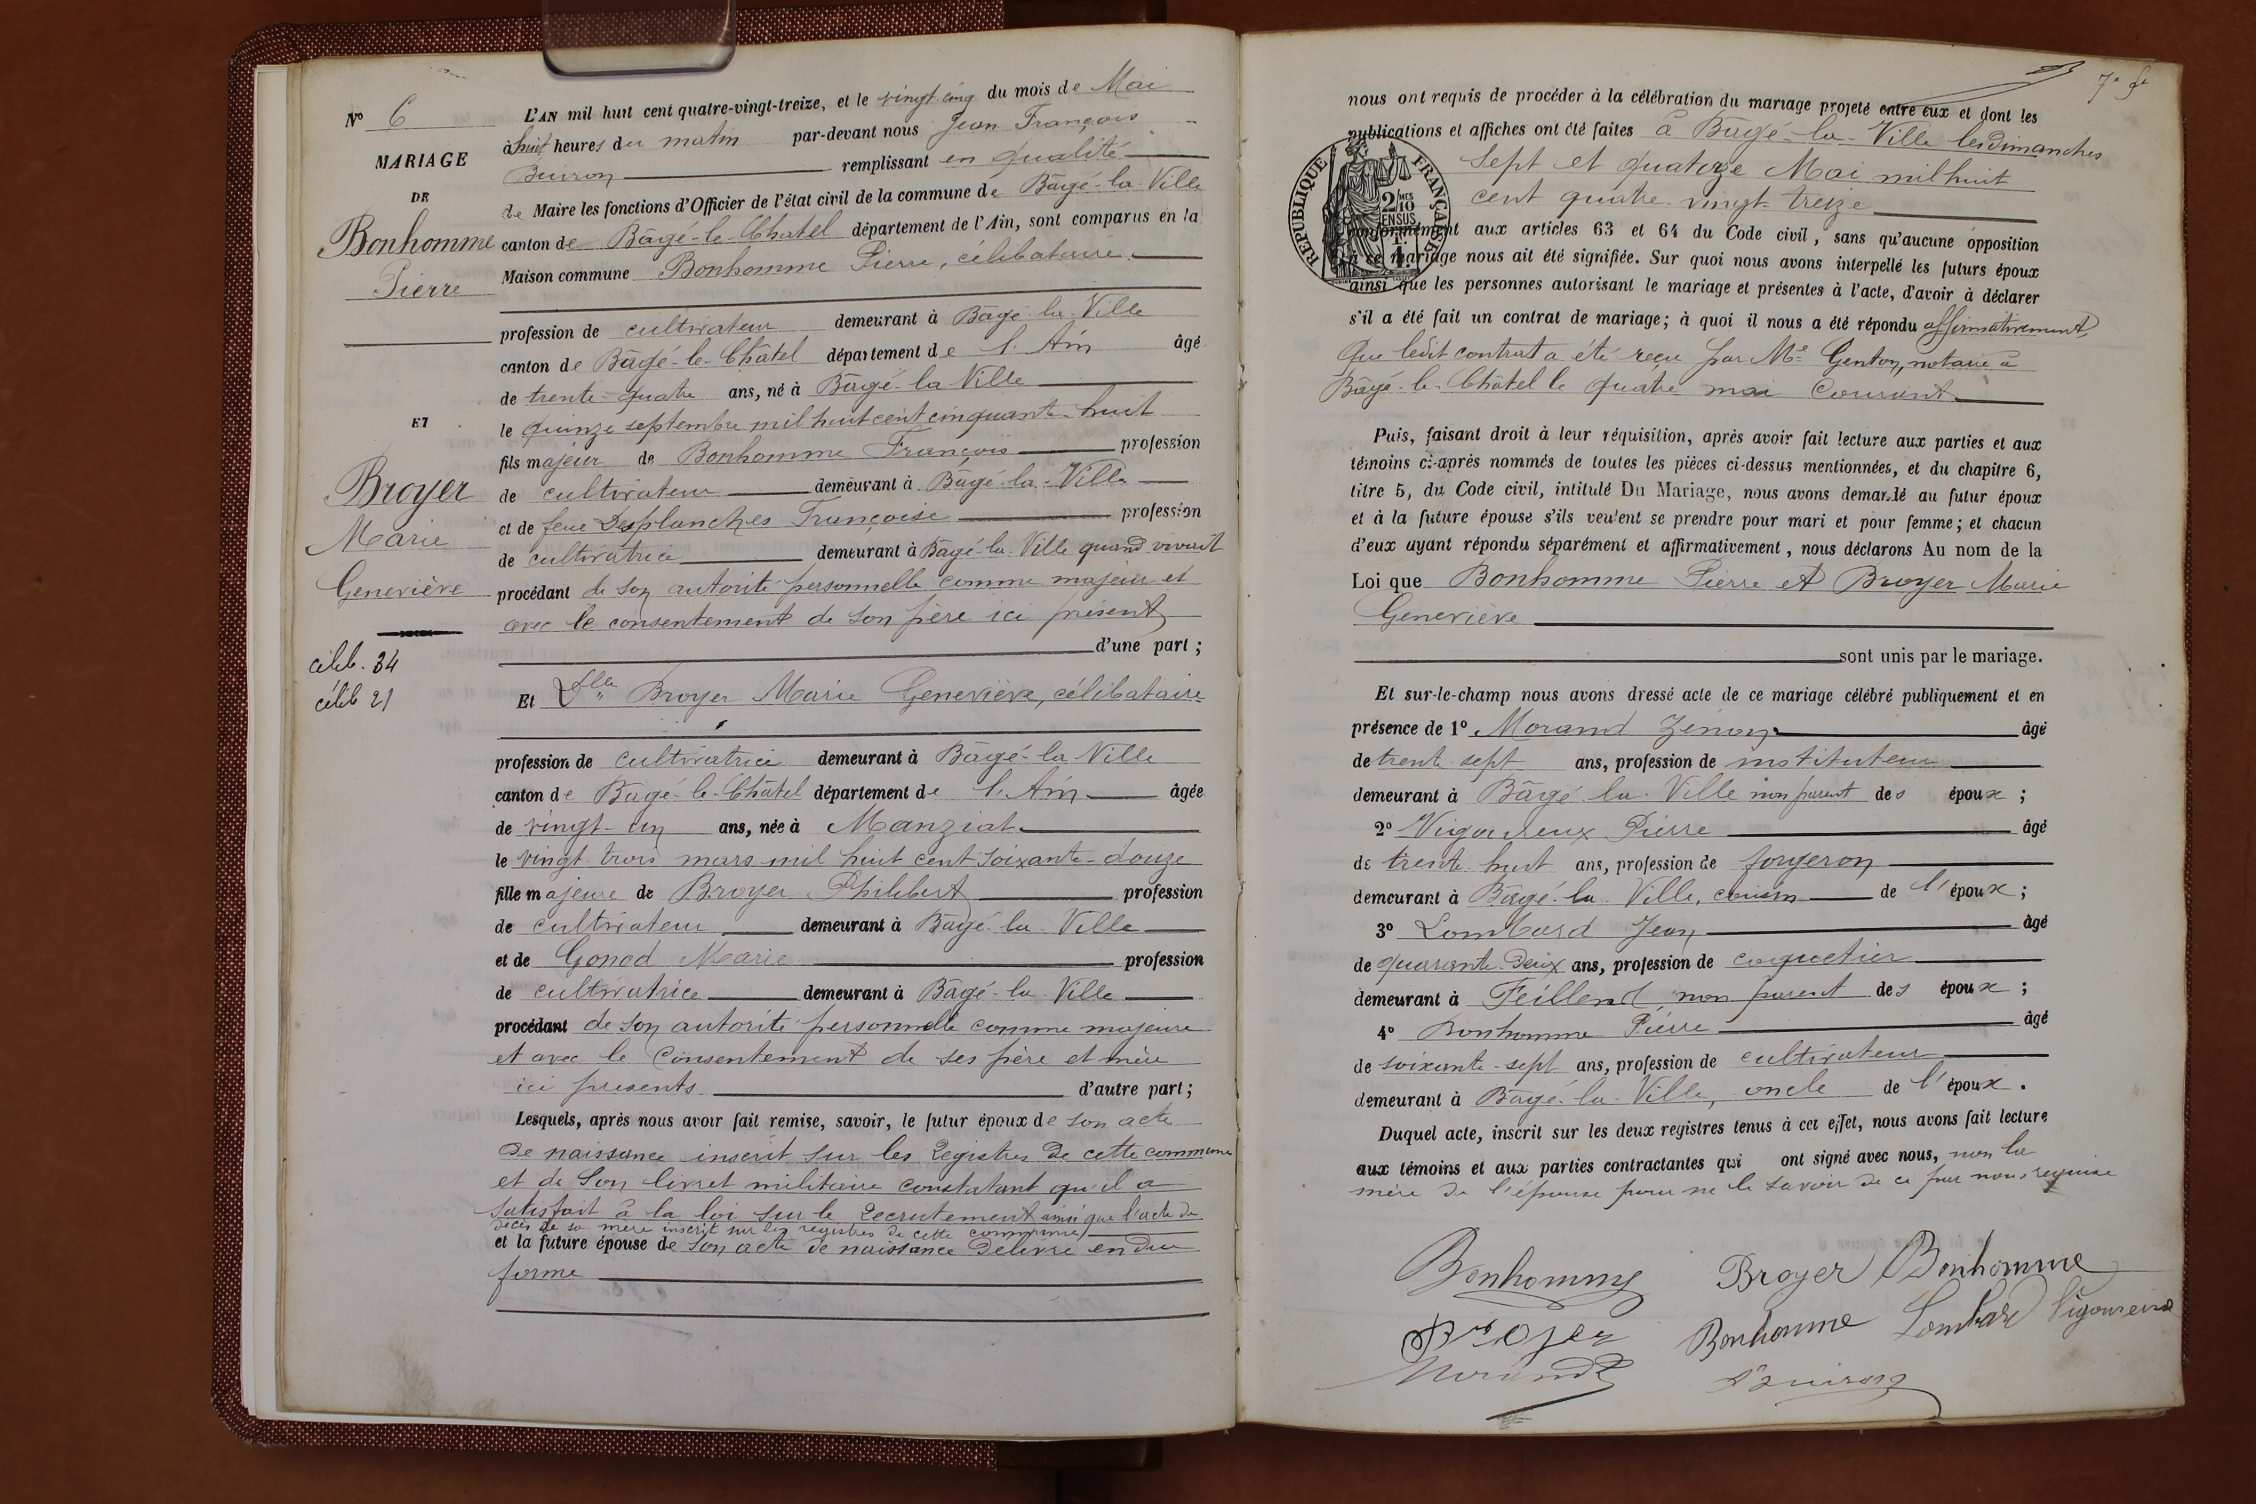 N° 6
MARIAGE
DE
Bonhomme
Pierre
ET
Broyer
Marie
Geneviève
célib. 34
célib 21
L'AN mil huit cent quatre-vingt-treize, et le vingt cinq du mois de Mai
à huit heures du matin par-devant nous Jean François
Buiron remplissant en qualité
de Maire les fonctions d'Officier de l'état civil de la commune de Bâgé-la-Ville
canton de Bâgé-le-Châtel département de l'Ain, sont comparus en la
Maison commune Bonhomme Pierre, célibataire
profession de cultivateur demeurant à Bâgé-la-Ville
canton de Bâgé-le-Châtel département de l'Ain âgé
de trente-quatre ans, né à Bâgé-la-Ville
le quinze septembre mil huit cent cinquante-huit
fils majeur de Bonhomme François profession
de cultivateur demeurant à Bâgé-la-Ville
et de feue Desplanches Françoise profession
de cultivatrice demeurant à Bâgé-la-Ville quand vivait
procédant de son autorité personnelle comme majeur et
avec le consentement de son père ici présent
d'une part ;
Et Dlle Broyer Marie Geneviève, célibataire
profession de cultivatrice demeurant à Bâgé-la-Ville
canton de Bâgé-le-Châtel département de l'Ain âgée
de vingt-un ans, née à Manziat
le vingt trois mars mil huit cent soixante-douze
fille majeure de Broyer Philibert profession
de cultivateur demeurant à Bâgé-la-Ville
et de Gonod Marie profession
de cultivatrice demeurant à Bâgé-la-Ville
procédant de son autorité personnelle comme majeure
et avec le consentement de ses père et mère
ici présents d'autre part ;
Lesquels, après nous avoir fait remise, savoir, le futur époux de son acte
de naissance inscrit sur les registres de cette commune
et de son livret militaire constatant qu'il a
satisfait à la loi sur le recrutement ainsi que l'acte de
décès de sa mère inscrit sur les registres de cette commune
et la future épouse de son acte de naissance délivré en due
forme
7e
nous ont requis de procéder à la célébration du mariage projeté entre eux et dont les
publications et affiches ont été faites à Bâgé-la-Ville les dimanches
sept et quatorze Mai mil huit
cent quatre-vingt-treize
RÉPUBLIQUE FRANÇAISE
2/10 EN SUS
conformément aux articles 63 et 64 du Code civil, sans qu'aucune opposition
à ce mariage nous ait été signifiée. Sur quoi nous avons interpellé les futurs époux
ainsi que les personnes autorisant le mariage et présentes à l'acte, d'avoir à déclarer
s'il a été fait un contrat de mariage ; à quoi il nous a été répondu affirmativement,
Que ledit contrat a été reçu par Me Genton, notaire à
Bâgé-le-Châtel le quatre mai courant
Puis, faisant droit à leur réquisition, après avoir fait lecture aux parties et aux
témoins ci-après nommés de toutes les pièces ci-dessus mentionnées, et du chapitre 6,
titre 5, du Code civil, intitulé Du Mariage, nous avons demandé au futur époux
et à la future épouse s'ils veulent se prendre pour mari et pour femme ; et chacun
d'eux ayant répondu séparément et affirmativement, nous déclarons Au nom de la
Loi que Bonhomme Pierre et Broyer Marie
Geneviève
sont unis par le mariage.
Et sur-le-champ nous avons dressé acte de ce mariage célébré publiquement et en
présence de 1° Morand Zénon âgé
de trente sept ans, profession de instituteur
demeurant à Bâgé-la-Ville non parent des époux ;
2° Vigoureux Pierre âgé
de trente huit ans, profession de forgeron
demeurant à Bâgé-la-Ville, cousin de l'époux ;
3° Lombard Jean âgé
de quarante-deux ans, profession de coquetier
demeurant à Feillens non parent des époux ;
4° Bonhomme Pierre âgé
de soixante-sept ans, profession de cultivateur
demeurant à Bâgé-la-Ville, oncle de l'époux.
Duquel acte, inscrit sur les deux registres tenus à cet effet, nous avons fait lecture
aux témoins et aux parties contractantes qui ont signé avec nous, non la
mère de l'épouse pour ne le savoir de ce par nous requise
Bonhomme Broyer Bonhomme
Broyer Bonhomme Lombard Vigoureux
Morand Buiron